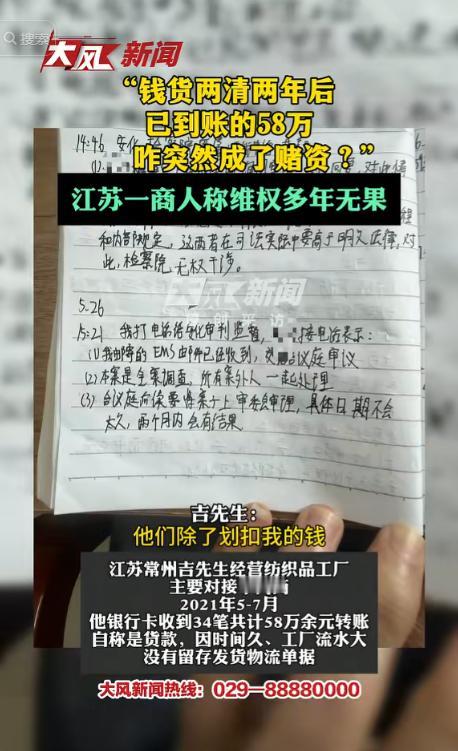 搜索
大风新闻
“钱货两清两年后
已到账的58万
咋突然成了赌资？”
江苏一商人称维权多年无果
和内部规定，这两者在司法实际中要高于明文法律，对
此，检察院无权干涉。
大风新闻
5.26
15:21 我打电话给安化审判监督，接电话表示：
(1)我邮寄的EMS邮件已经收到，交合议庭审议
(2)本案是全案调查，所有案外人一起处理
(3)合议庭而后要得案子上审委会审理，具体日期不会
太久，两个月内会有结果
吉先生：
他们除了划扣我的钱
江苏常州吉先生经营纺织品工厂
主要对接
2021年5-7月
他银行卡收到34笔共计58万余元转账
自称是货款，因时间久、工厂流水大
没有留存发货物流单据
大风新闻热线：029—88880000